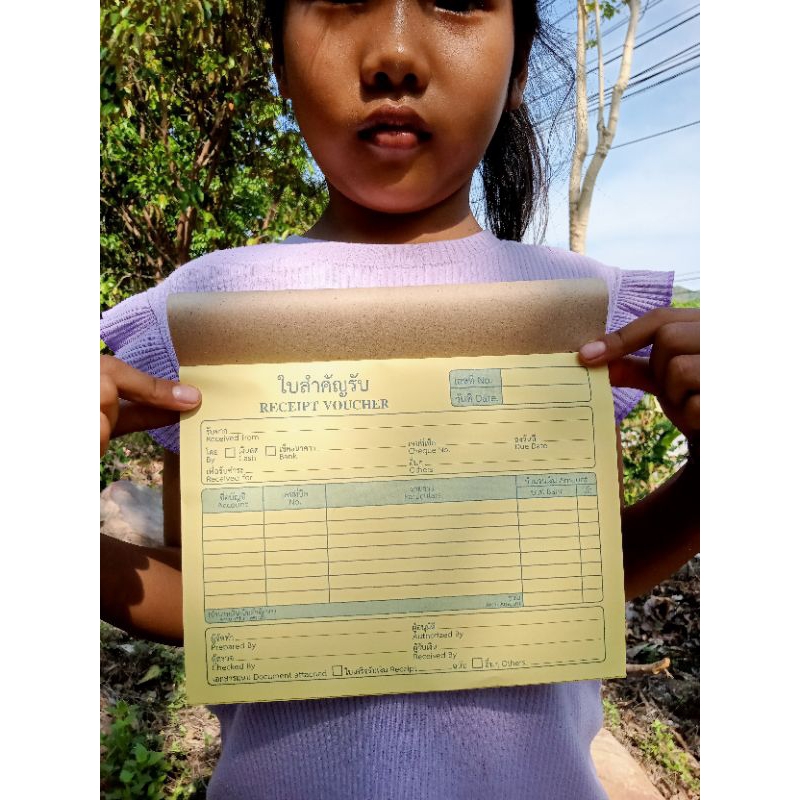 ใบสำคัญรับ
RECEIPT VOUCHER
เลขที่ No.
วันที่ Date.
รับจาก
Received from
โดย เงินสด เช็คธนาคาร เลขที่เช็ค ลงวันที่
By Cash Bank Cheque No. Due Date
เพื่อรับชำระ อื่นๆ
Received for Others
ชื่อบัญชี เลขที่บิล รายการ จำนวนเงิน Amount
Account No. Particulars บาท Baht
รวม
ผู้จัดทำ ผู้อนุมัติ
Prepared By Authorized By
ผู้ตรวจ ผู้รับเงิน
Checked By Received By
เอกสารแนบ Document attached ใบเสร็จรับเงิน Receipt ฉบับ อื่นๆ Others